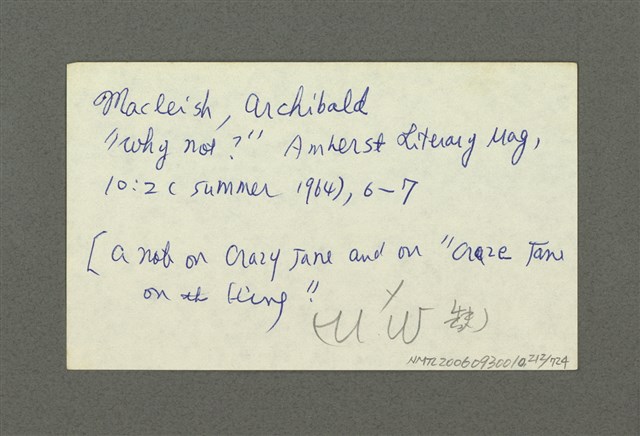 Macleish, Archibald
"Why not?" Amherst Literary Mag,
10:2 ( summer 1964), 6-7
[ a not on Crazy Jane and on "Craze Jane
on the King"
NMTL20060930010,212/724